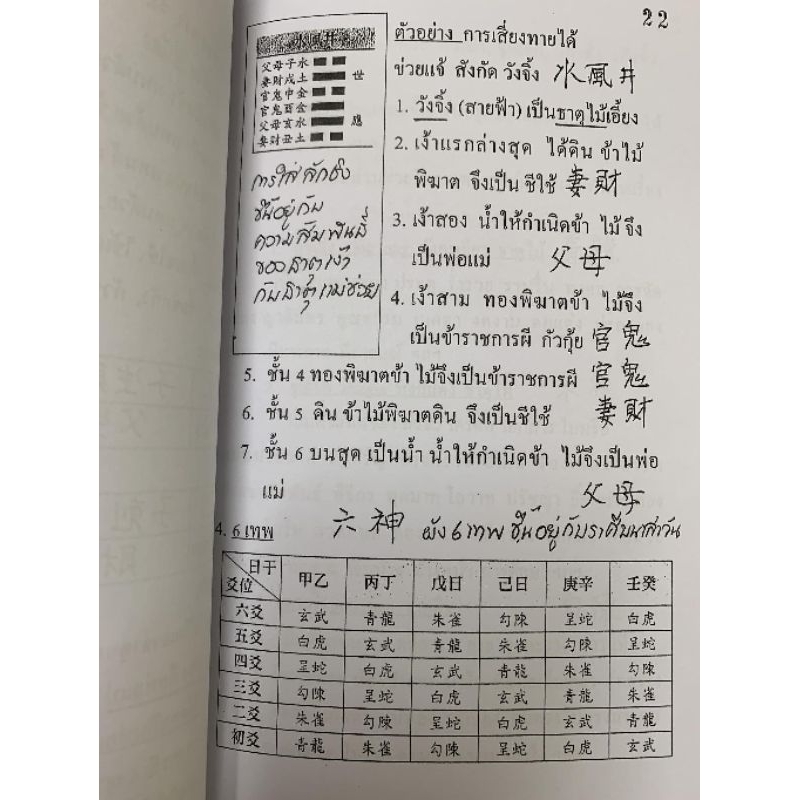 22
水風井
父母子水
妻財戌土 世
官鬼申金
官鬼酉金
父母亥水 應
妻財丑土
การใส่ลักชิง
ขึ้นอยู่กับ
ความสัมพันธ์
ของธาตุเง้า
กับธาตุแม่ช่วย
ตัวอย่าง การเสี่ยงทายได้
ข่วยแจ้ สังกัด วังจิ้ง 水風井
1. วังจิ้ง (สายฟ้า) เป็นธาตุไม้เอี้ยง
2. เง้าแรกล่างสุด ได้ดิน ข้าไม้
พิฆาต จึงเป็น ชีใช้ 妻財
3. เง้าสอง น้ำให้กำเนิดข้า ไม้ จึง
เป็นพ่อแม่ 父母
4. เง้าสาม ทองพิฆาตข้า ไม้จึง
เป็นข้าราชการผี กัวกุ้ย 官鬼
5. ชั้น 4 ทองพิฆาตข้า ไม้จึงเป็นข้าราชการผี 官鬼
6. ชั้น 5 ดิน ข้าไม้พิฆาตดิน จึงเป็นชีใช้ 妻財
7. ชั้น 6 บนสุด เป็นน้ำ น้ำให้กำเนิดข้า ไม้จึงเป็นพ่อ
แม่ 父母
4. 6 เทพ 六神 ผัง 6 เทพ ขึ้นอยู่กับราศีบนกิ่งวัน
日干
爻位 甲乙 丙丁 戊日 己日 庚辛 壬癸
六爻 玄武 青龍 朱雀 勾陳 呈蛇 白虎
五爻 白虎 玄武 青龍 朱雀 勾陳 呈蛇
四爻 呈蛇 白虎 玄武 青龍 朱雀 勾陳
三爻 勾陳 呈蛇 白虎 玄武 青龍 朱雀
二爻 朱雀 勾陳 呈蛇 白虎 玄武 青龍
初爻 青龍 朱雀 勾陳 呈蛇 白虎 玄武